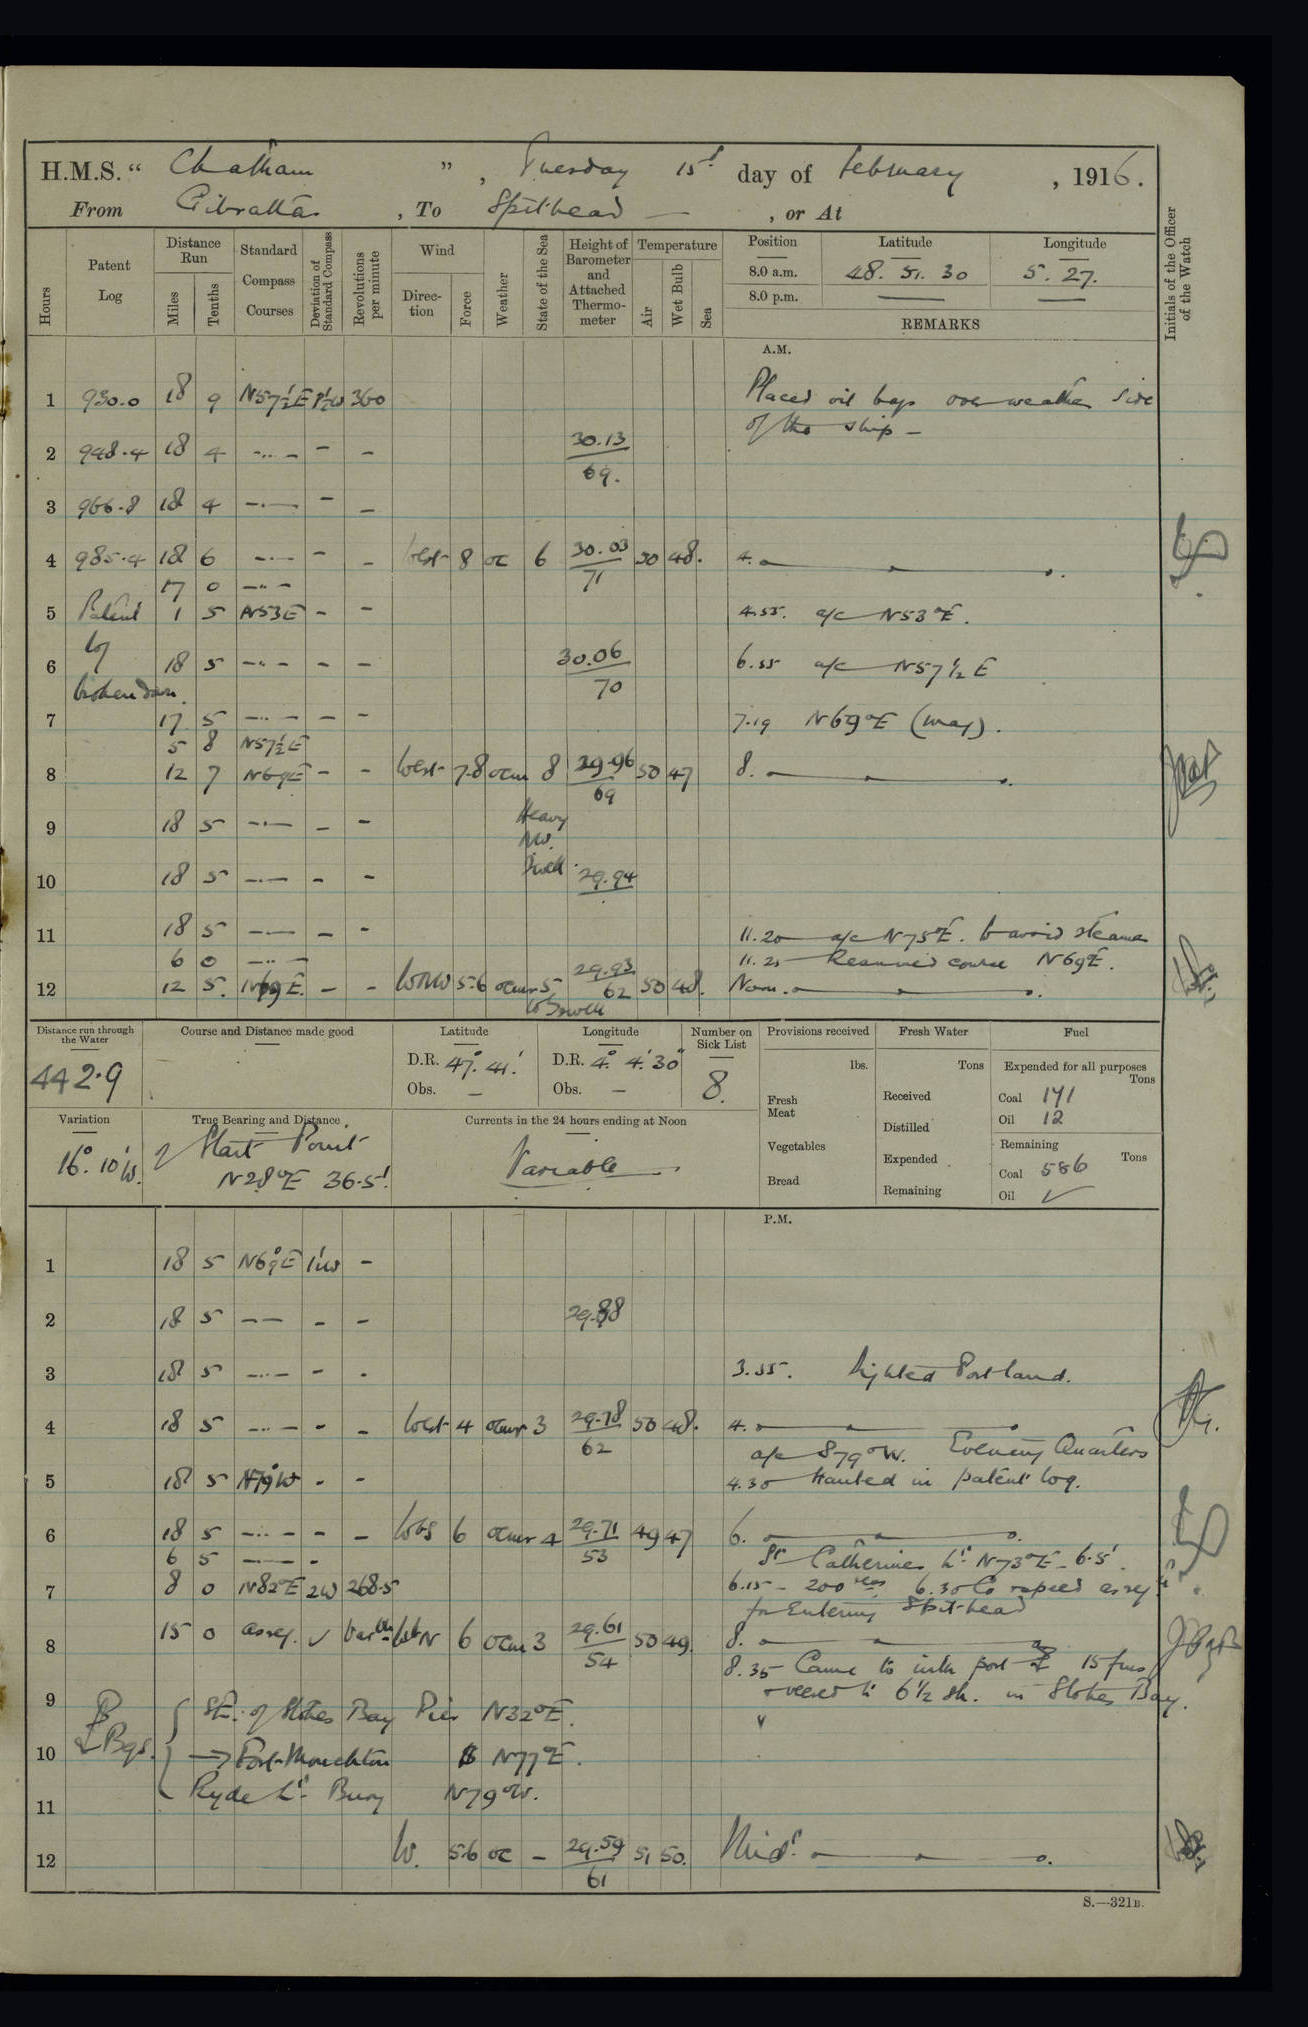 H.M.S. “ Chatham ” , Tuesday 15th day of February , 1916.
From Gibraltar , To Spithead — , or At
Hours
Patent Log
Distance Run
Miles
Tenths
Standard Compass Courses
Deviation of Standard Compass
Revolutions per minute
Wind
Direction
Force
Weather
State of the Sea
Height of Barometer and Attached Thermometer
Temperature
Air
Wet Bulb
Sea
Position Latitude Longitude
8.0 a.m. 48. 51. 30 5. 27.
8.0 p.m. — —
REMARKS
Initials of the Officer of the Watch
A.M.
1 930.0 18 9 N57½E 1½W 360 Placed oil bags over weather side
of the ship –
2 948.4 18 4 -..- - - 30.13
69.
3 966.8 18 4 -.- - -
4 985.4 18 6 -.- - - West 8 oc 6 30.03 50 48. 4.
71
17 0 -..-
5 Patent 1 5 N53E - - 4.55. a/c N53°E.
6 log 18 5 -..- - - 30.06 6.55 a/c N57½E
broken down. 70
7 17 5 -..- - - 7.19 N69°E (mag).
5 8 N57½E
8 12 7 N69E - - West 7.8 ocm 8 29.96 50 47 8.
69
9 18 5 -.- - - Heavy
NW.
Swell.
10 18 5 -.- - - 29.94
11 18 5 -.- - - 11.20 a/c N75°E. to avoid steamer
6 0 -..- 11.25 Resumed course N69°E.
12 12 5. N69E. - - WNW 5.6 ocmr 5 29.93 50 48. Noon.
W Swell 62
Distance run through the Water
442.9
Course and Distance made good
Latitude
D.R. 47°. 41'.
Obs. –
Longitude
D.R. 4°. 4'. 30"
Obs. –
Number on Sick List
8.
Provisions received
lbs.
Fresh Meat
Vegetables
Bread
Fresh Water
Tons
Received
Distilled
Expended
Remaining
Fuel
Expended for all purposes
Tons
Coal 141
Oil 12
Remaining
Tons
Coal 586
Oil ✓
Variation
16°. 10'W.
True Bearing and Distance
of Start Point
N28°E 36.5'.
Currents in the 24 hours ending at Noon
Variable
P.M.
1 18 5 N69°E 1'W -
2 18 5 -- - - 29.88
3 18 5 -..- - - 3.55. Sighted Portland.
4 18 5 -..- - - West 4 ocmr 3 29.78 50 48. 4.
62
a/c S79°W. Evening Quarters
5 18 5 N79°W - - 4.30 Hauled in patent log.
6 18 5 -..- - - WbS 6 ocmr 4 29.71 49 47 6.
53
6 5 -.- - St Catherines Lt N73°E 6.5'.
7 8 0 N82°E 2W 268.5 6.15 – 200 revs 6.30 Co & speed as req.
for Entering Spithead
8 15 0 as req. ✓ Varble WbN 6 ocm 3 29.61 50 49. 8.
54
8.35 Came to with port 15 fms
veered to 6½ sh. in Stokes Bay.
9 SE. of Stokes Bay Pier N32°E.
10 Bgs. → Fort Monckton N77°E.
11 Ryde Lt Buoy N79°W.
12 W. 5.6 oc - 29.59 51 50. Midt.
61
S.—321B.